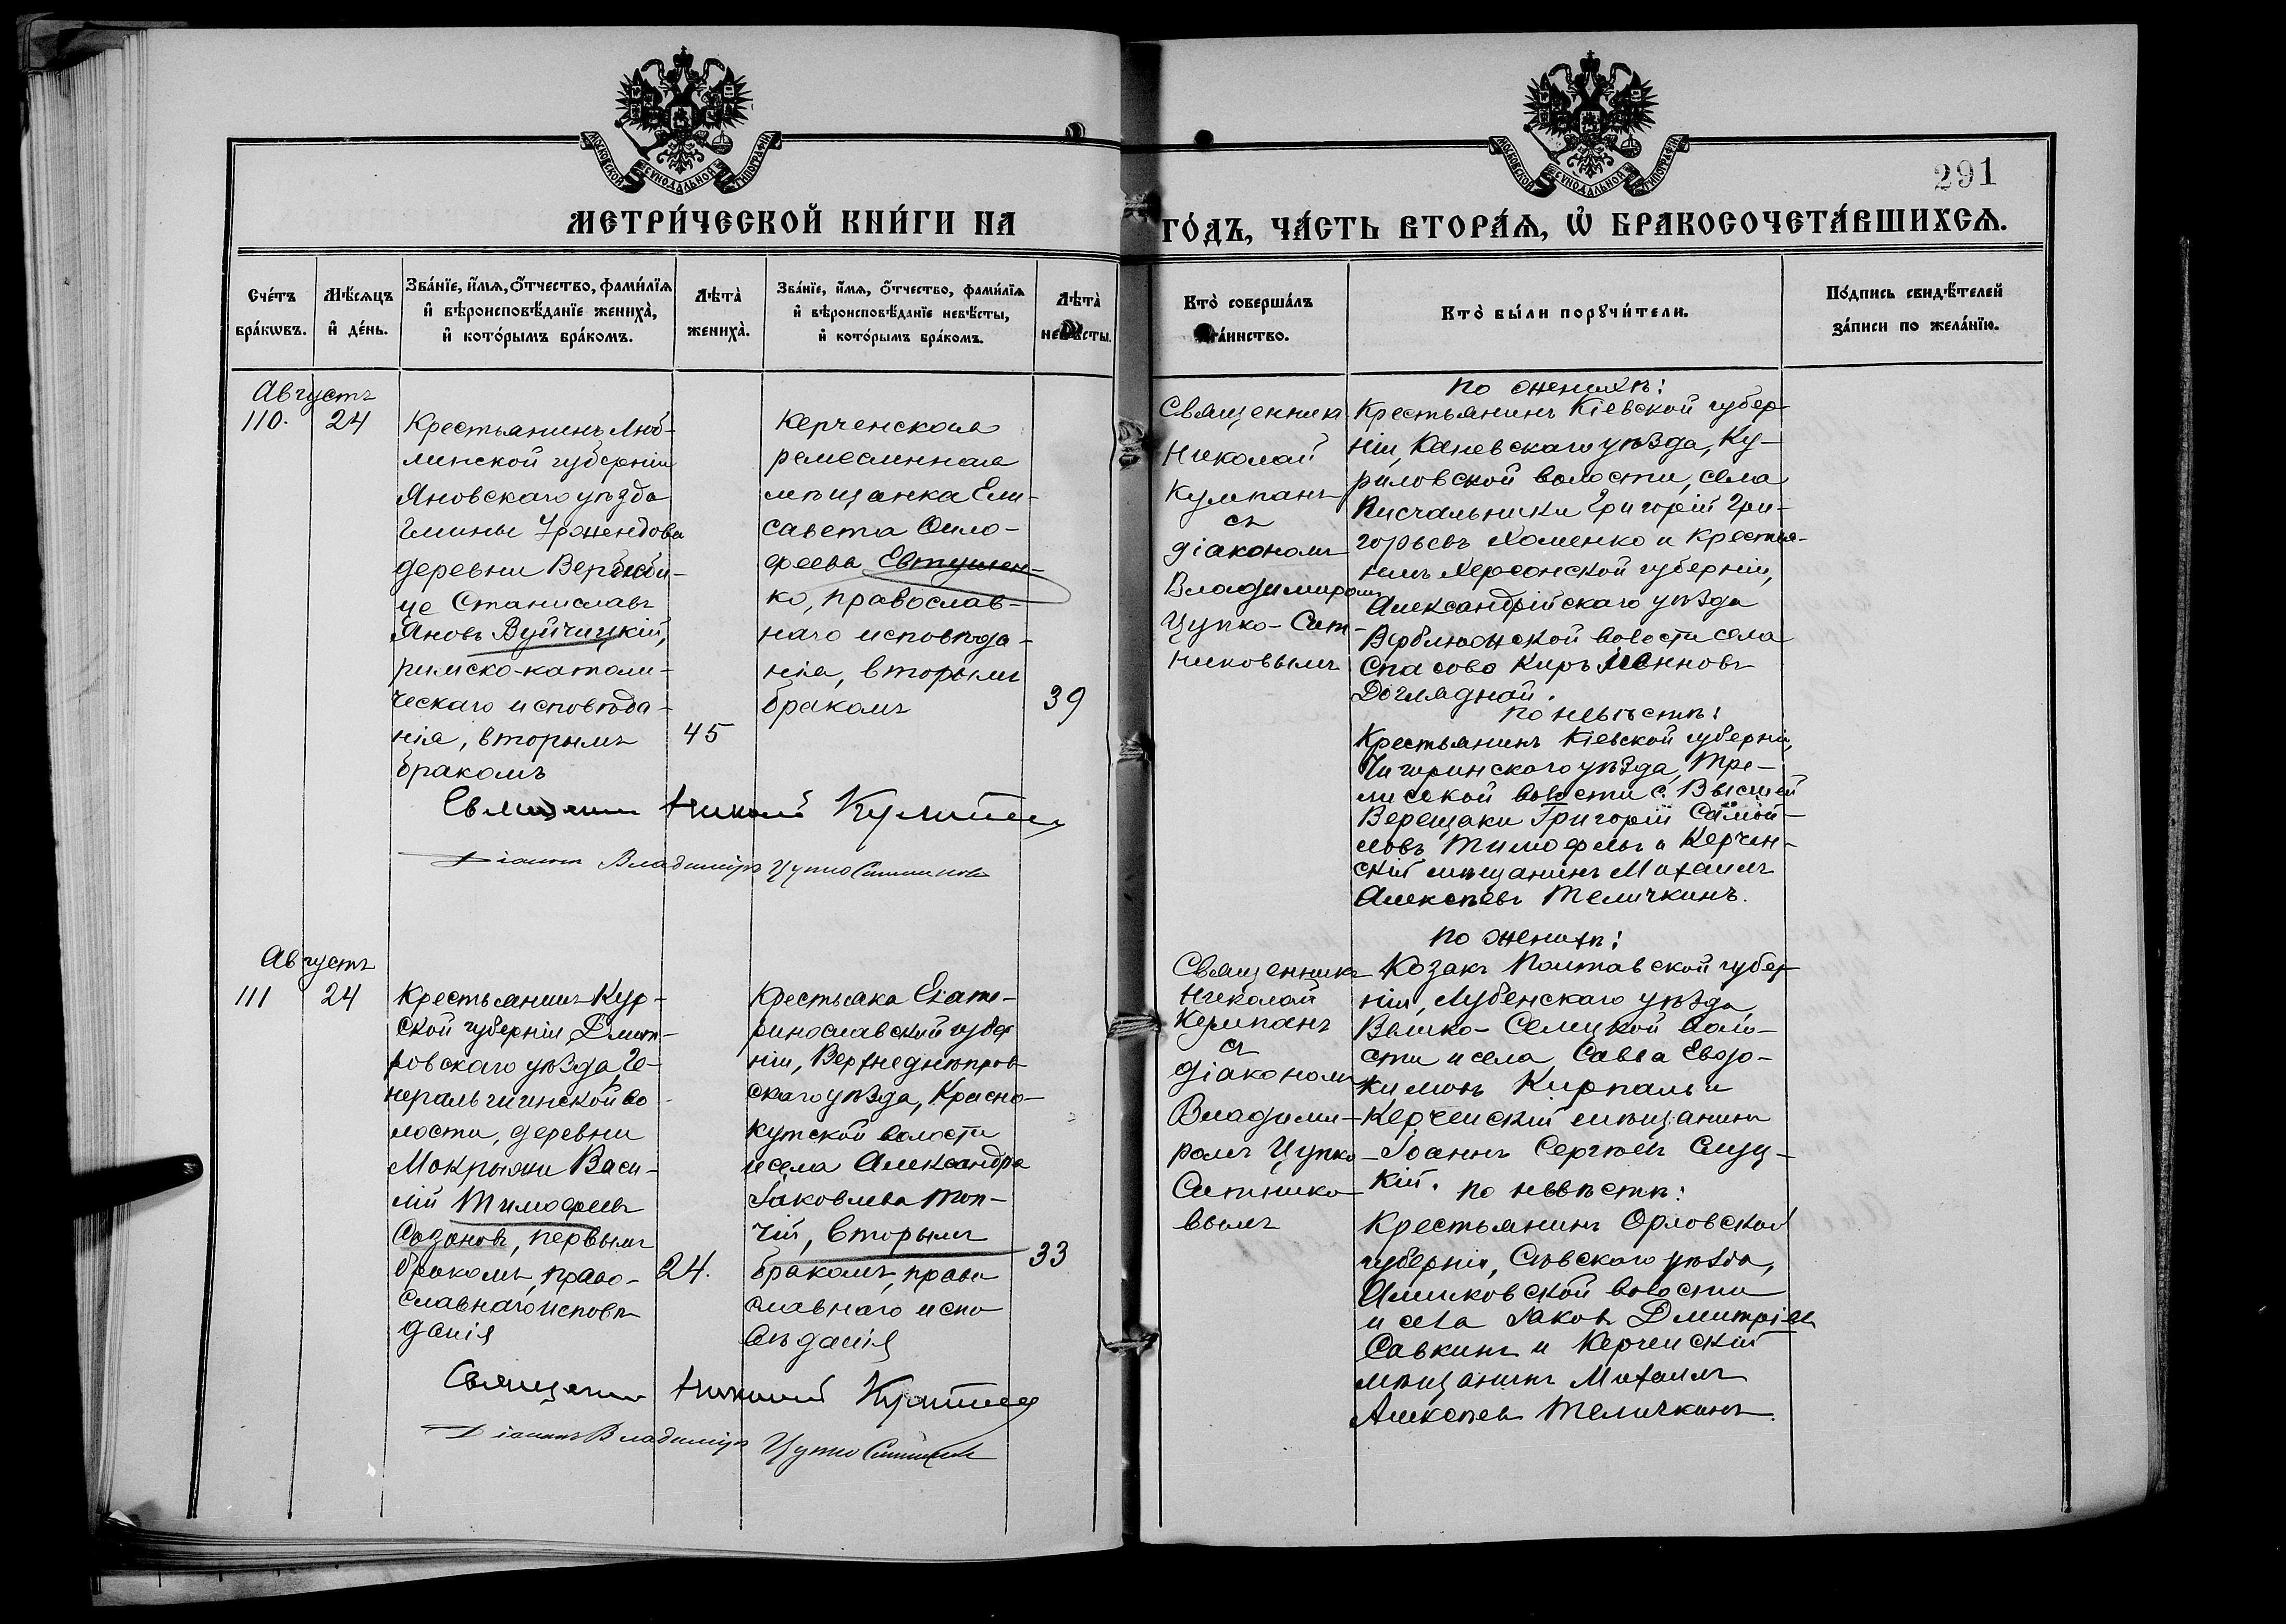 МОСКОВСКОЙ СУНОДАЛЬНОЙ ТИПОГРАФІИ
МОСКОВСКОЙ СУНОДАЛЬНОЙ ТИПОГРАФІИ
291
МЕТРИ́ЧЕСКОЙ КНИ́ГИ НА
ГО́ДЪ, ЧА́СТЬ ВТОРА́Ѧ, Ѽ БРАКОСОЧЕТА́ВШИХСѦ.
Сче́тъ бра́кωвъ.
Мѣ́сяцъ и҆ де́нь.
Зва́нїе, и҆́мѧ, ѻ҆́тчество, фами́лїѧ
и҆ вѣроисповѣ́данїе жениха̀,
и҆ кото́рымъ бра́комъ.
Лѣта̀ жениха̀.
Зва́нїе, и҆́мѧ, ѻ҆́тчество, фами́лїѧ
и҆ вѣроисповѣ́данїе невѣ́сты,
и҆ кото́рымъ бра́комъ.
Лѣта̀ невѣ́сты.
Кто̀ соверша́лъ
та́инство.
Кто̀ бы́ли порꙋчи́тели.
По́дпись свидѣ́телей
за́писи по жела́нїю.
Августъ
110.
24
Крестьянинъ Люб-
линской губерніи
Яновскаго уѣзда
гмины Уржендова
деревни Вербиби-
це Станиславъ
Яновъ Вуйчицкій,
римско-католи-
ческаго исповѣда-
нія, вторымъ
бракомъ
45
Керченская
ремесленная
мѣщанка Ели-
савета Фило-
феева Евтушен-
ко, православ-
наго исповѣда-
нія, вторымъ
бракомъ
39
Священникъ
Николай
Кулпанъ
съ
діакономъ
Владимиромъ
Цупко-Сит-
никовымъ
по женихѣ:
Крестьянинъ Кіевской губер-
ніи, Каневскаго уѣзда, Ку-
риловской волости, села
Писчальники Григорій Гри-
горьевъ Хоменко и крестья-
нинъ Херсонской губерніи,
Александрійскаго уѣзда
Верблюжской волости села
Спасово Киръ Іоанновъ
Доглядной.
по невѣстѣ:
Крестьянинъ Кіевской губерніи,
Чигиринскаго уѣзда, Тре-
лисской волости с. Высшей
Верещаки Григорій Самой-
ловъ Тимофѣевъ и Керчен-
скій мѣщанинъ Михаилъ
Алексѣевъ Теличкинъ.
Священникъ Николай
Діаконъ Владиміръ Цупко Ситниковъ
Августъ
111
24
Крестьянинъ Кур-
ской губерніи, Дмит-
ровскаго уѣзда, Ге-
неральшинской во-
лости, деревни
Мокрыжи Васи-
лій Тимофеевъ
Созоновъ, первымъ
бракомъ, право-
славнаго исповѣ
данія
24.
Крестьянка Екате-
ринославской губер
ніи, Верхнеднѣпров
скаго уѣзда, Красно-
кутской волости
и села Александра
Іаковлева Топ-
чій, вторымъ
бракомъ, право
славнаго испо
вѣданія
33
Священникъ
Николай
Кулпанъ
съ
діакономъ
Владими-
ромъ Цупко-
Ситнико
вымъ
по женихѣ:
Козакъ Полтавской губер
ніи, Лубенскаго уѣзда,
Вышко-Селецкой воло-
сти и села, Савва Евдо-
кимовъ Кирпаль и
Керченскій мѣщанинъ
Іоаннъ Сергѣевъ Слуц-
кій.
по невѣстѣ:
Крестьянинъ Орловской
губерніи, Сѣвскаго уѣзда,
волости
и села Іаковъ Дмитріевъ
Савкинъ и Керченскій
мѣщанинъ Михаилъ
Алексѣевъ Теличкинъ.
Священникъ Николай
Діаконъ Владиміръ Цупко Ситниковъ